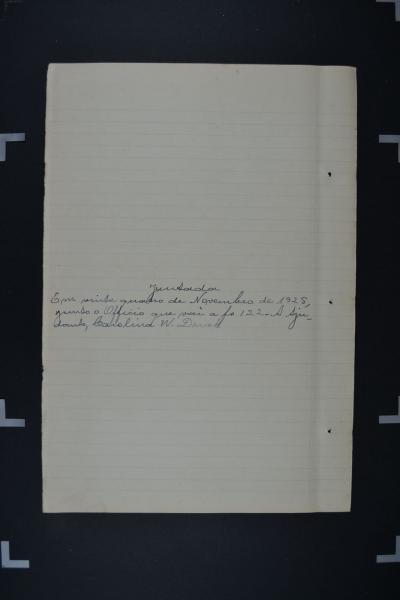 Juntada
Em vinte quatro de Novembro de 1928,
junto o Officio que vai a fs 122. A Aju-
dante, Carolina W.